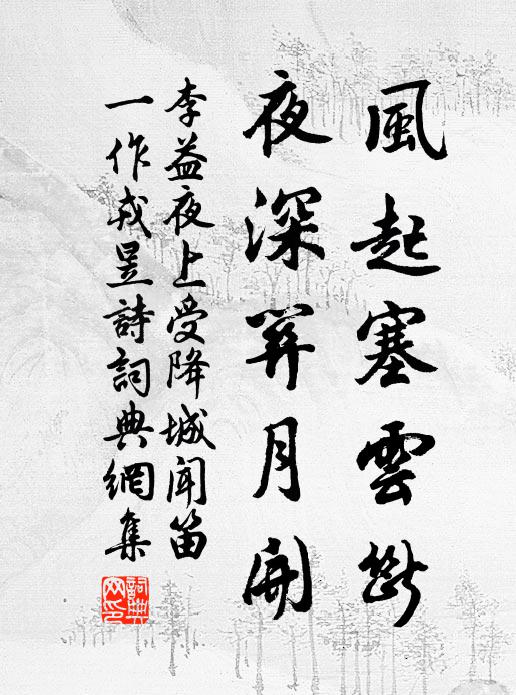 風起塞雲斷
夜深關月開
李益夜上受降城聞笛
一作戎昱詩詞典網集
詞典
网印